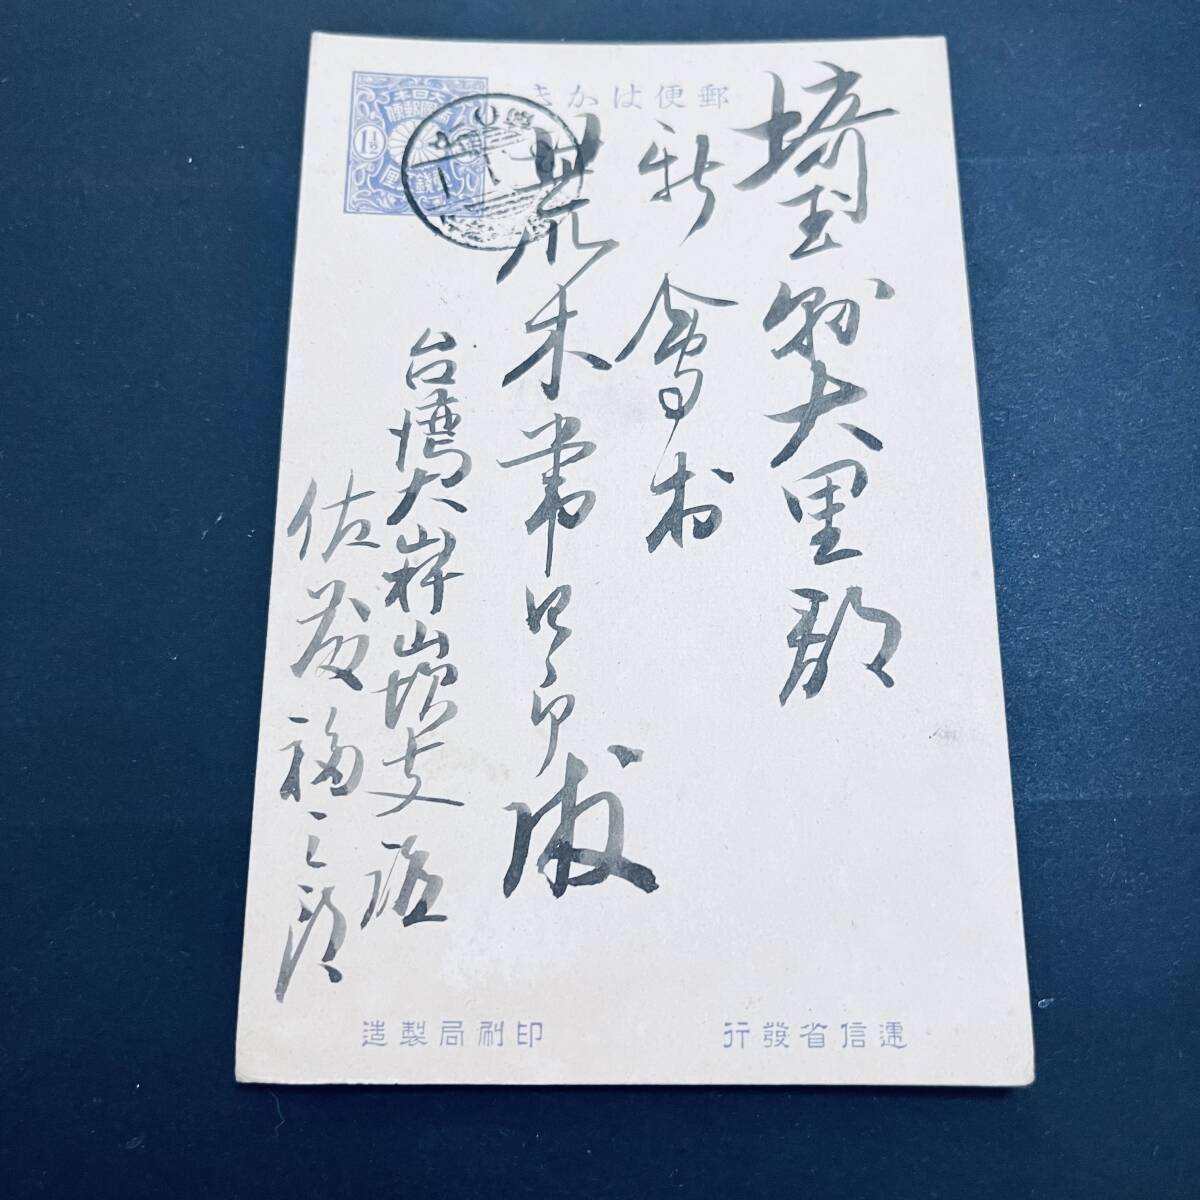 郵便はかき
大日本帝國郵便
1½
壹錢五厘
埼玉縣大里郡
新會村
荒木常四郎殿
台湾大嵙崁支廳
佐藤福之助
遞信省發行
印刷局製造